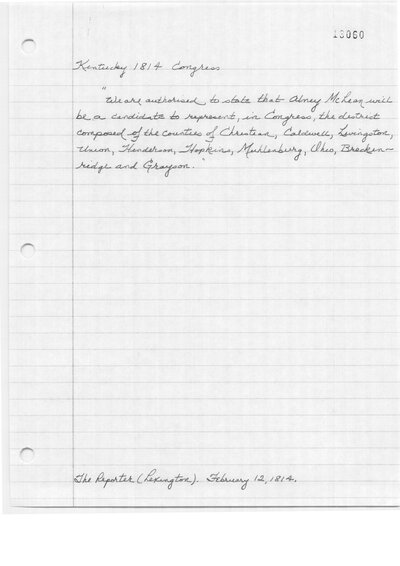 13060
Kentucky 1814 Congress
"We are authorised to state that Abney McLean will
be a candidate to represent, in Congress, the district
composed of the counties of Christian, Caldwell, Livingston,
Union, Henderson, Hopkins, Muhlenburg, Ohio, Brecken-
redge and Grayson."
The Reporter (Lexington). February 12, 1814.